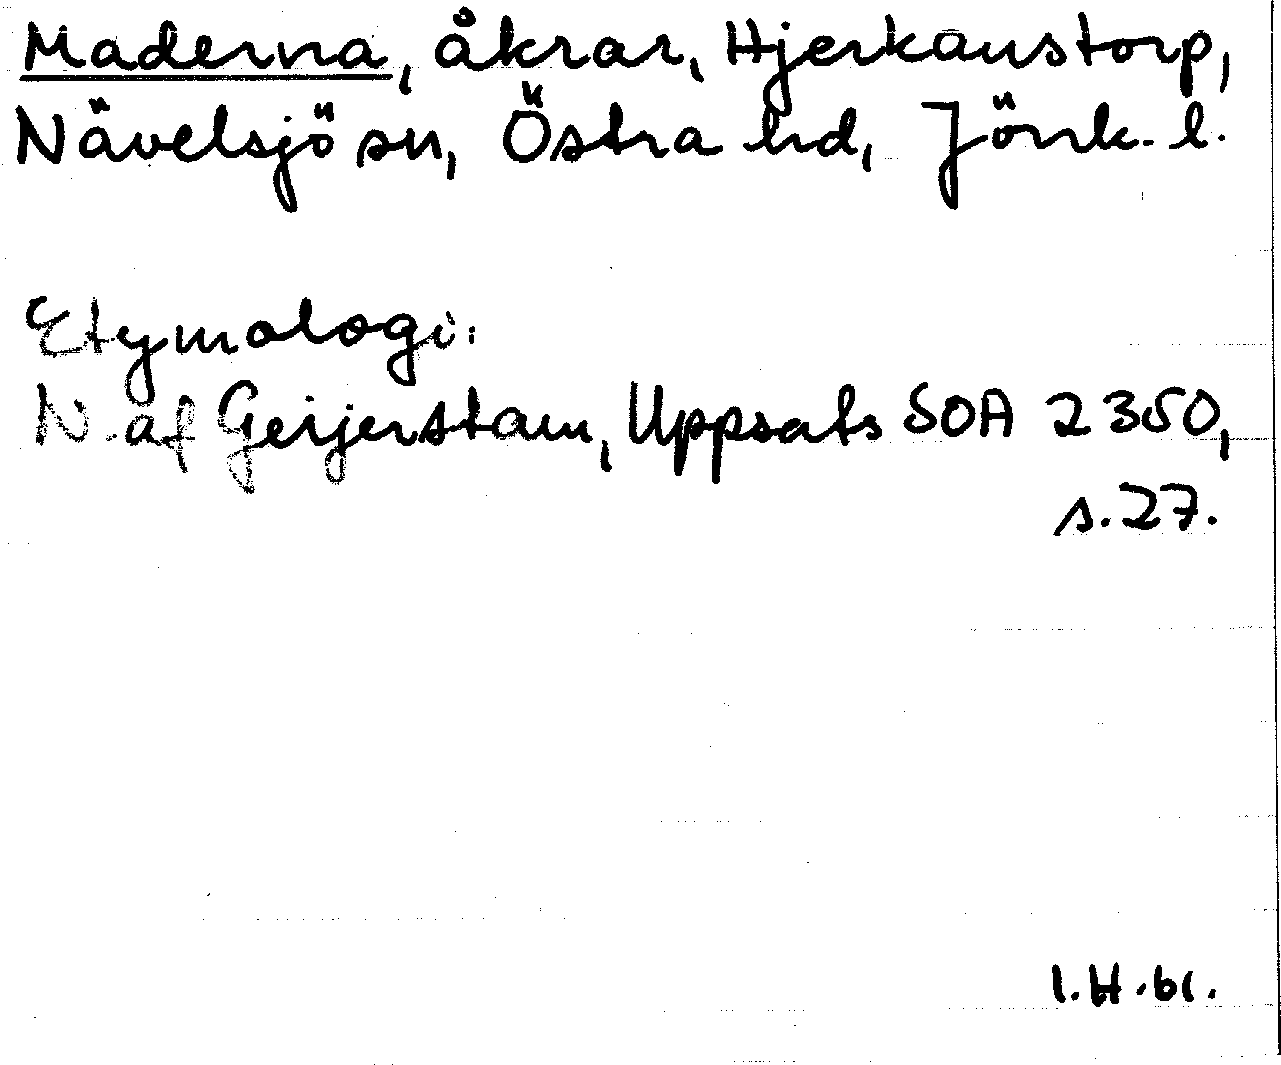 Maderna, åkrar, Hjerkanstorp,
Nävelsjö sn, Östra hd, Jönk. l.
Etymologi:
N. af Geijerstam, Uppsats SOA 2350,
s. 27.
I.H. 61.